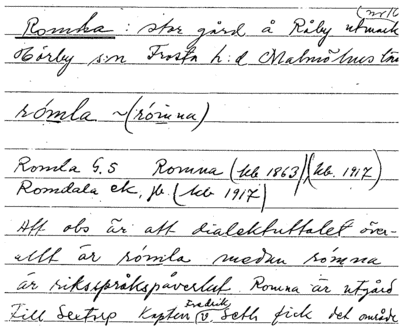 (nr 16
Romka : stor gård å Råby utmark
Hörby s:n Frosta h:d Malmöhus län
rómla ~ (rómna)
Romla G.S Romna (kb 1863) (kb. 1917)
Romdala ek. jb. (kb 1917)
Att obs är att dialektuttalet över-
allt är rómla medan rómna
är riksspråkspåverkat. Romna är utgård
till Sextorp Kapten Fredrik v. Seth fick det område